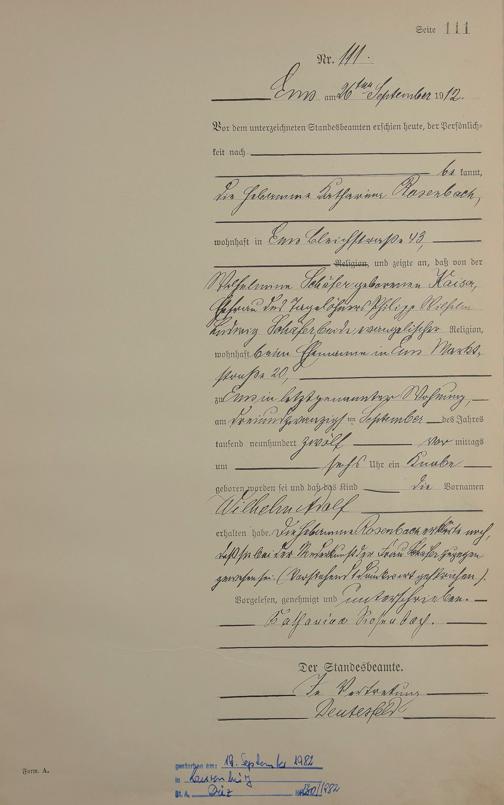 Seite 111
Nr. 111.
Ems am 26ten September 1912.
Vor dem unterzeichneten Standesbeamten erschien heute, der Persönlich-
keit nach
bekannt,
die Hebamme Katharina Rosenbach,
wohnhaft in Ems Bleichstraße 43,
Religion, und zeigte an, daß von der
Wilhelmine Schäfer geborenen Kaiser,
Ehefrau des Tagelöhners Philipp Wilhelm
Ludwig Schäfer beide evangelischer Religion,
wohnhaft beim Ehemanne in Ems Markt-
straße 20,
zu Ems in letztgenannter Wohnung,
am dreiundzwanzigsten September des Jahres
tausend neunhundert zwölf vormittags
um sechs Uhr ein Knabe
geboren worden sei und daß das Kind die Vornamen
Wilhelm Adolf
erhalten habe. Die Hebamme Rosenbach erklärte noch,
daß sie bei der Niederkunft der Frau Schäfer zugegen
gewesen sei. (Vorstehend 1 Druckwort gestrichen.)
Vorgelesen, genehmigt und unterschrieben.
Katharina Rosenbach.
Der Standesbeamte.
In Vertretung
gestorben am 19. September 1982
in
St. A. Diez
Form. A.